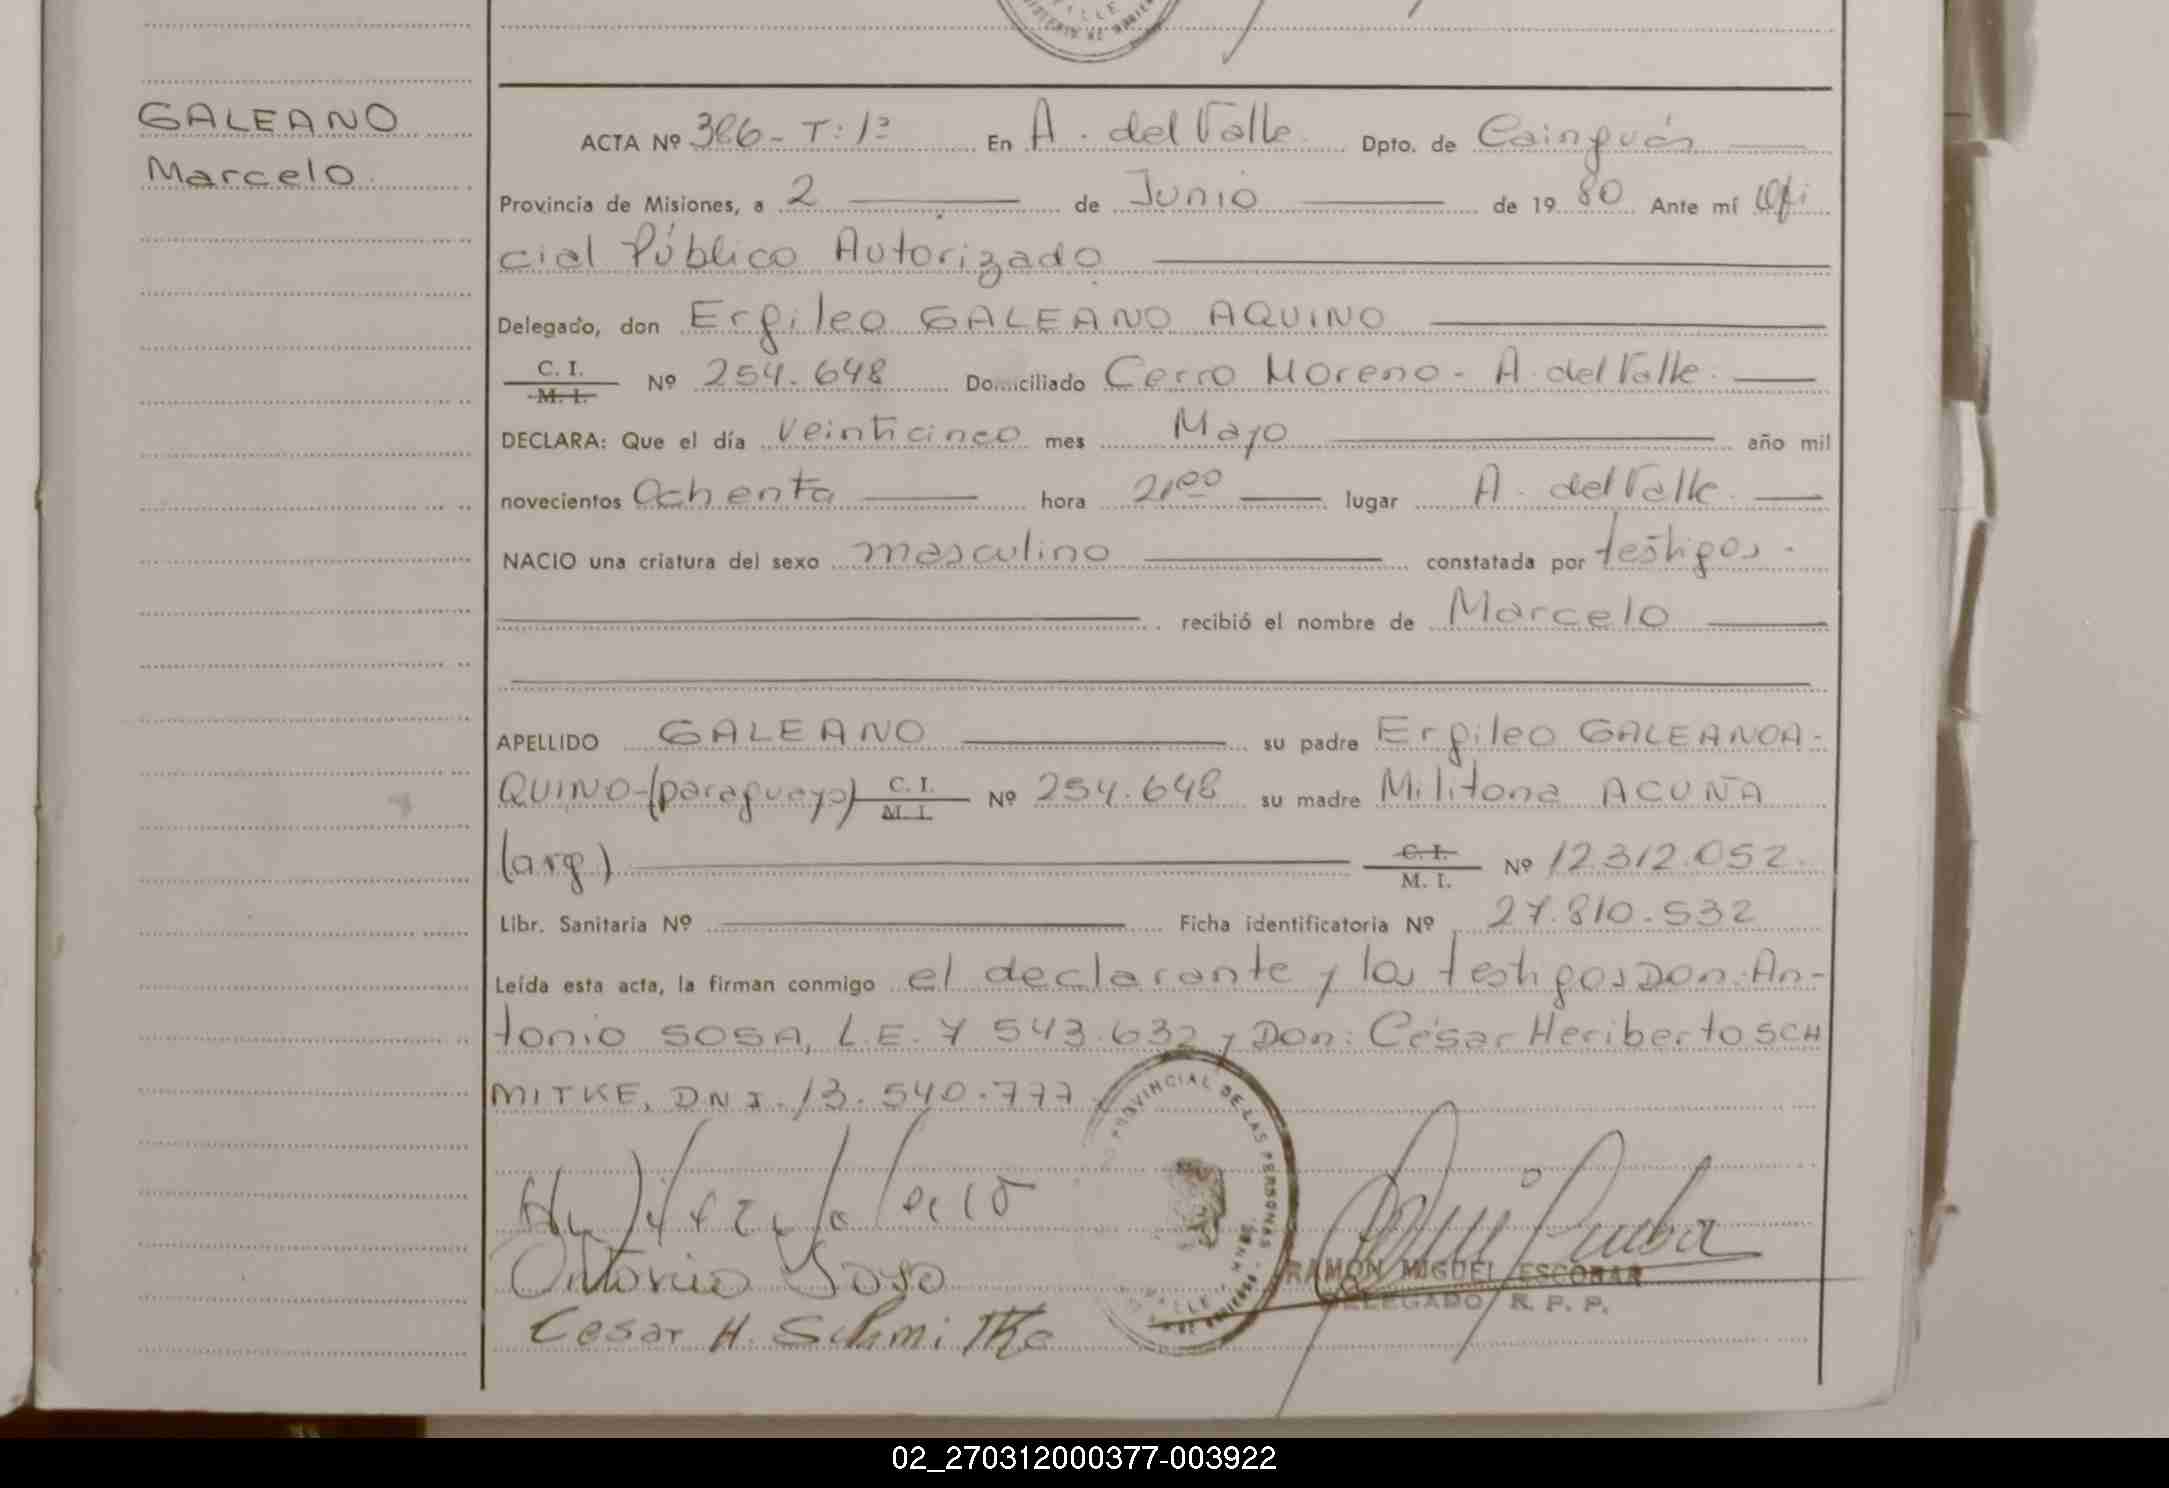 GALEANO
Marcelo
ACTA Nº 386 - T: 1º En A. del Valle Dpto. de Cainguás
Provincia de Misiones, a 2 de Junio de 1980 Ante mí Ofi
cial Público Autorizado
Delegado, don Ergileo GALEANO AQUINO
C. I.
M. I. Nº 254.648 Domiciliado Cerro Moreno - A. del Valle
DECLARA: Que el día Veinticinco mes Mayo año mil
novecientos Ochenta hora 21,00 lugar A. del Valle
NACIO una criatura del sexo masculino constatada por testigos.
recibió el nombre de Marcelo
APELLIDO GALEANO su padre Ergileo GALEANO A-
QUINO-(paraguayo) C. I. M. I. Nº 254.648 su madre Militona ACUÑA
(arg.) C. I. M. I. Nº 12.312.052.
Libr. Sanitaria Nº Ficha identificatoria Nº 27.810.532
Leída esta acta, la firman conmigo el declarante y los testigos Don: An-
tonio SOSA, L.E. 7 543.632 y Don: César Heriberto SCH
MITKE, DNI. 13.540.777
PROVINCIAL DE LAS PERSONAS
VALLE
Antonio Soso
Cesar H. Schmitke
RAMON MIGUEL ESCOBAR
DELEGADO R. P. P.
02_270312000377-003922